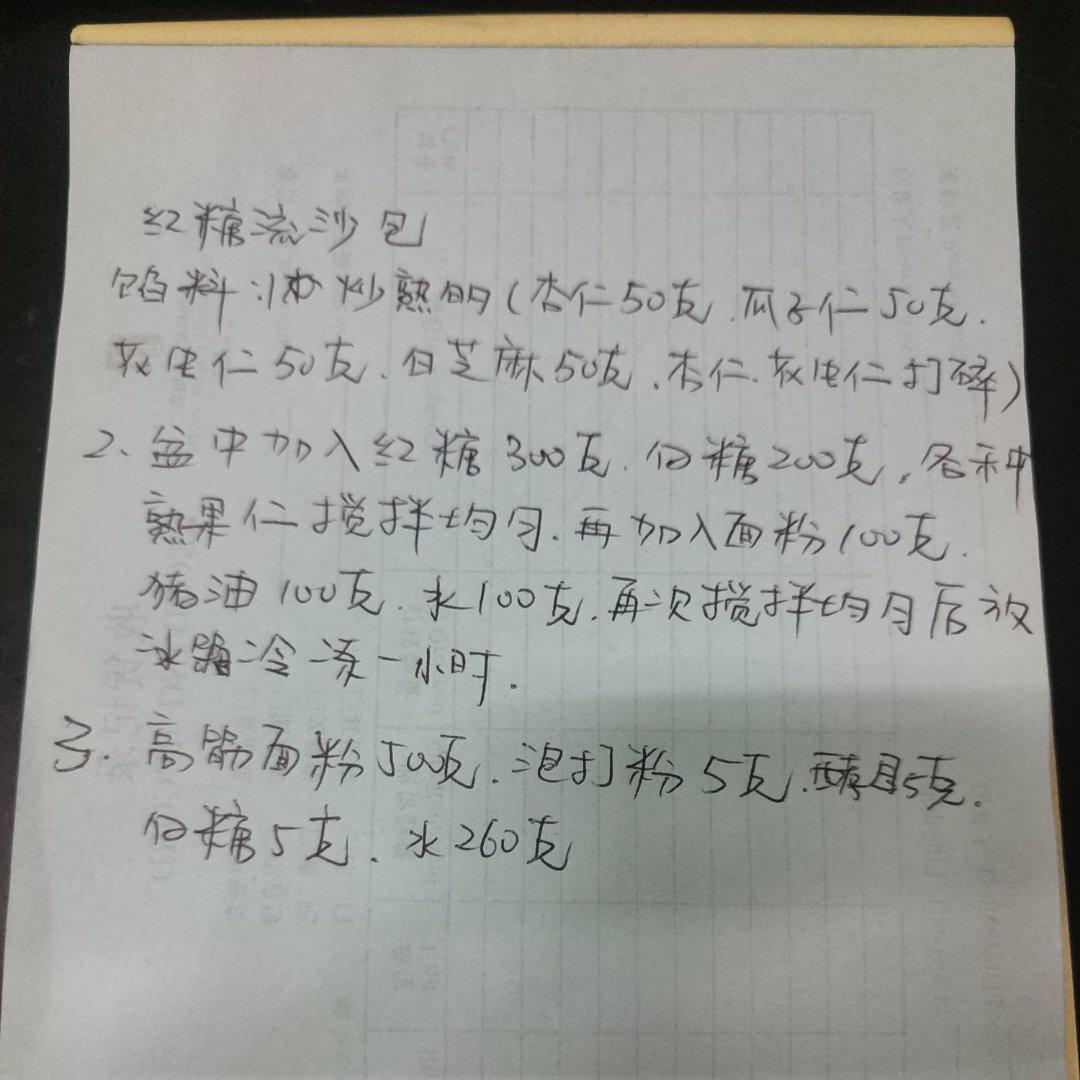 红糖流沙包
馅料:1、炒熟的(杏仁50克、瓜子仁50克、
花生仁50克、白芝麻50克、杏仁、花生仁打碎)
2、盆中加入红糖300克、白糖200克,各种
熟果仁搅拌均匀、再加入面粉100克、
猪油100克、水100克、再次搅拌均匀后放
冰箱冷冻一小时.
3、高筋面粉500克、泡打粉5克、酵母5克、
白糖5克、水260克